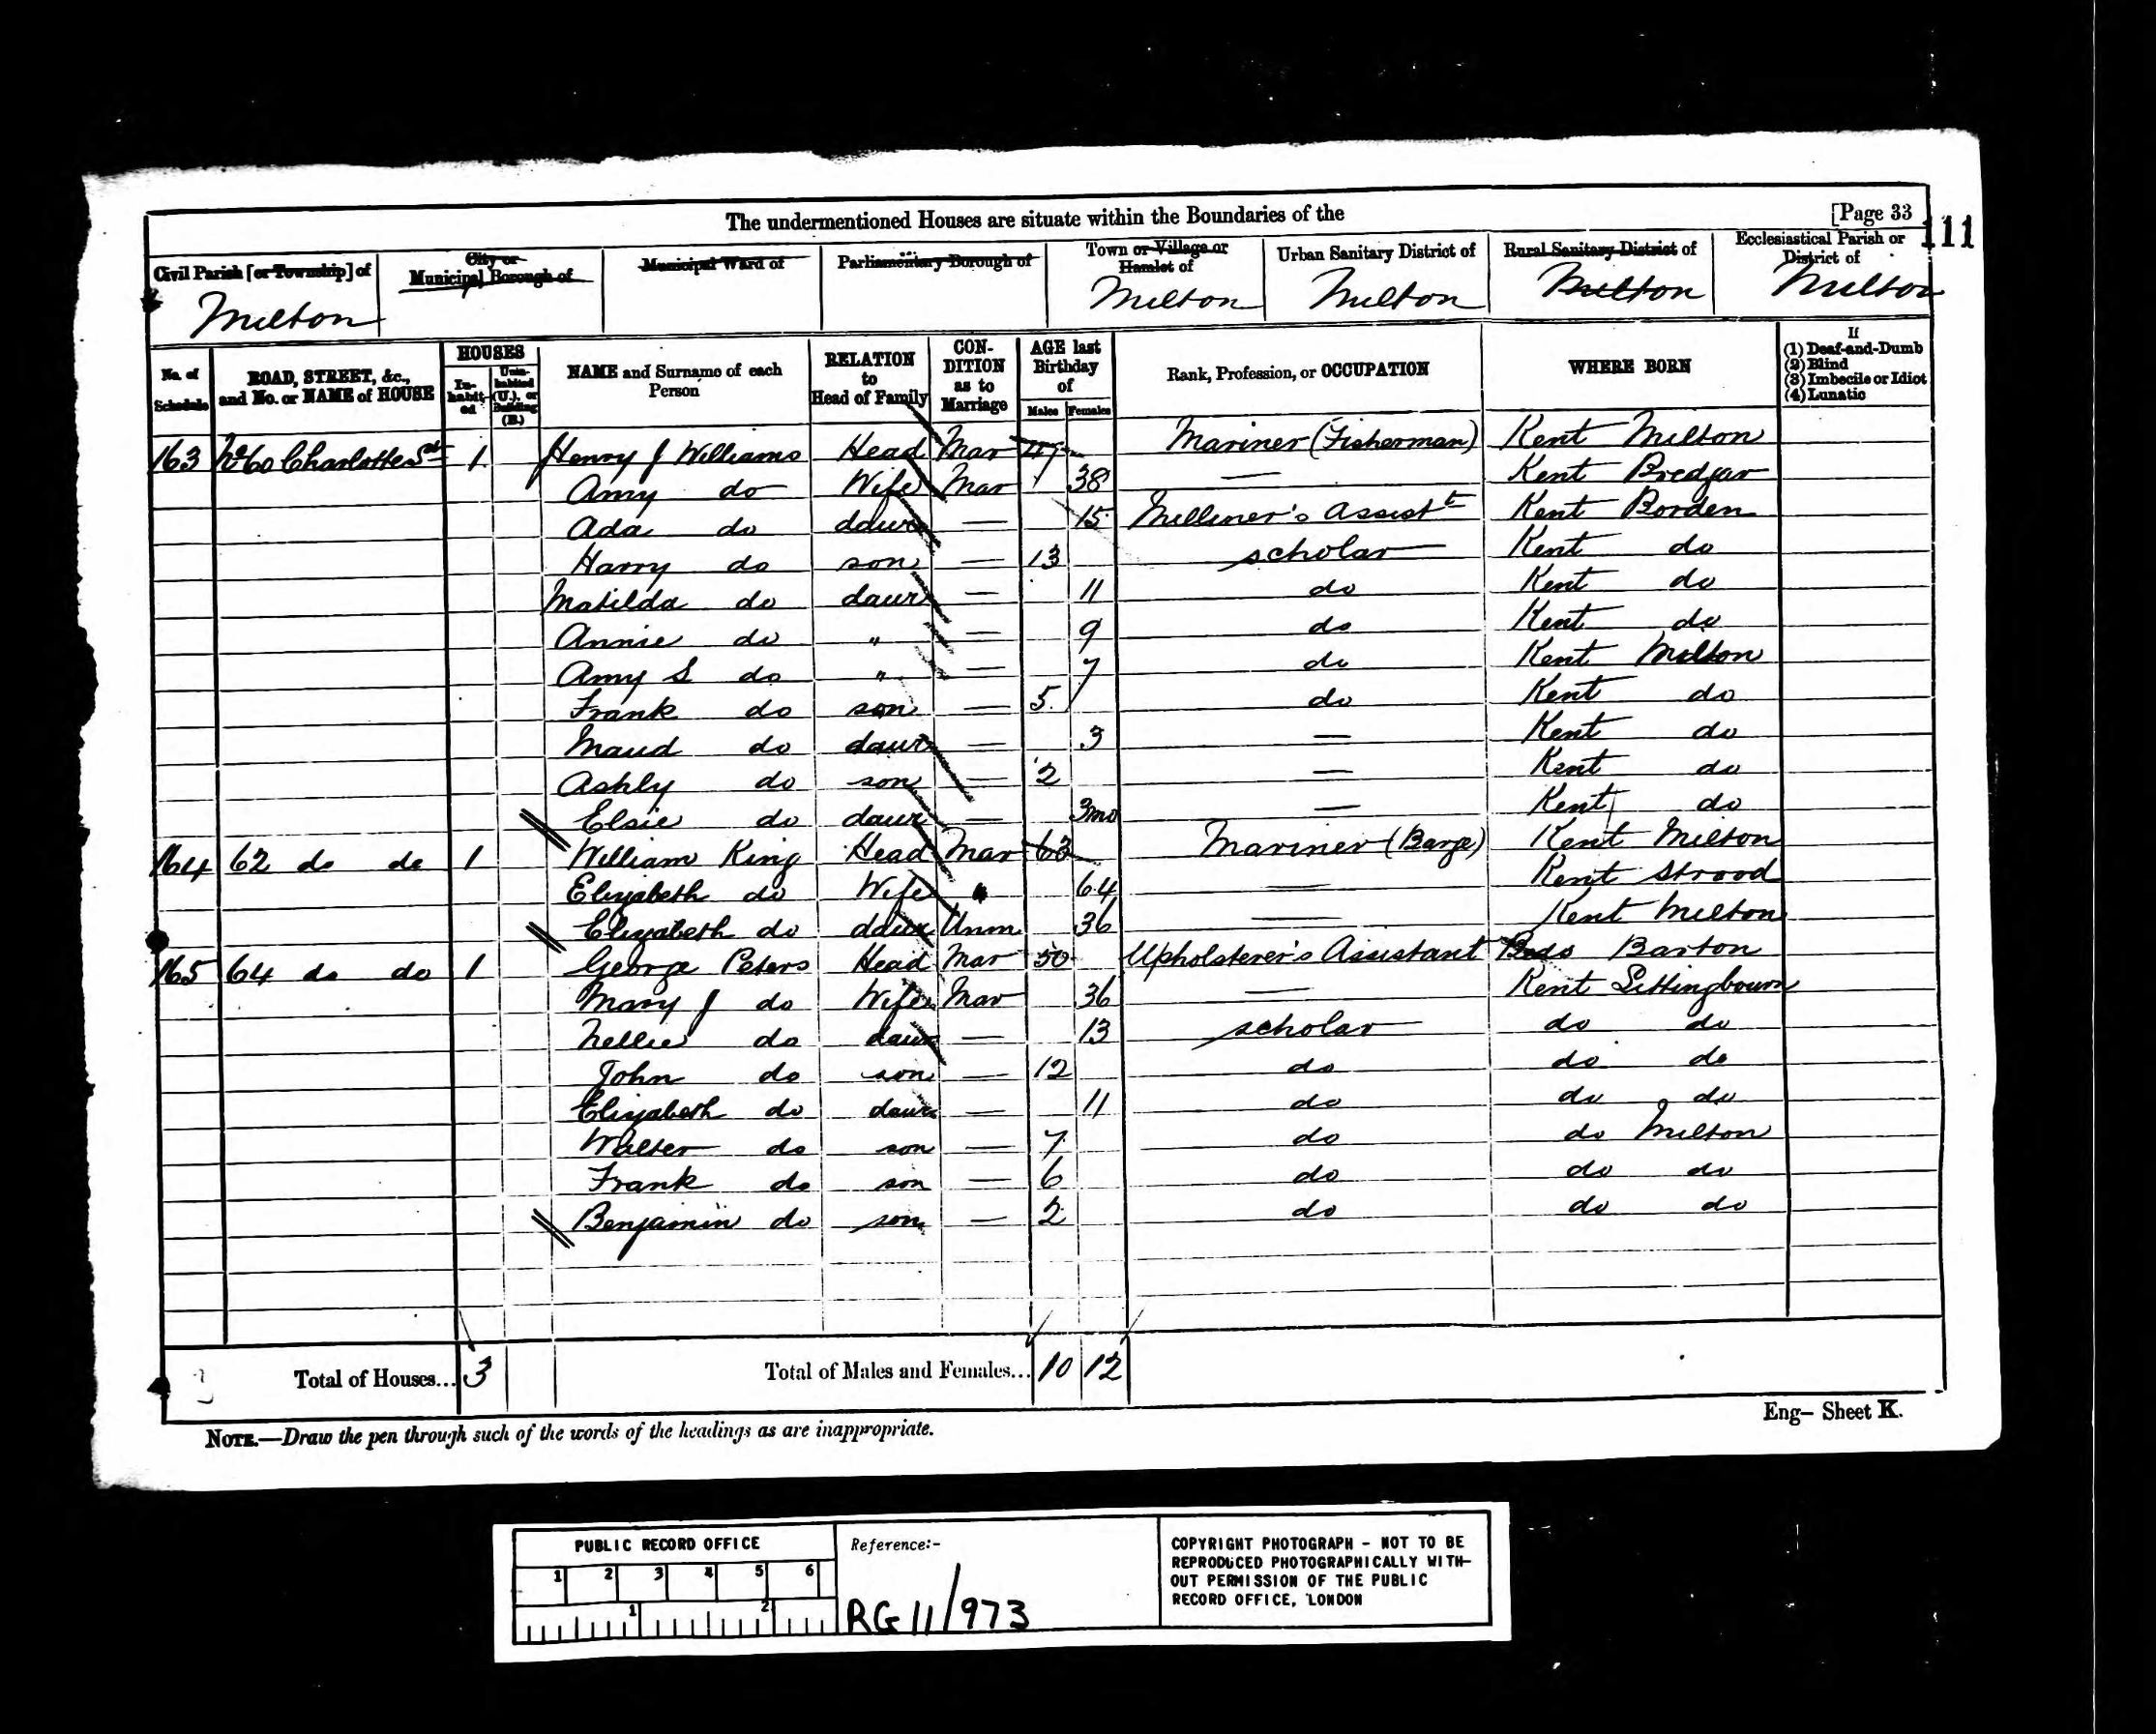 The undermentioned Houses are situate within the Boundaries of the [Page 33
111
Civil Parish [or Township] of City or Municipal Borough of Municipal Ward of Parliamentary Borough of Town or Village or Hamlet of Urban Sanitary District of Rural Sanitary District of Ecclesiastical Parish or District of
Milton Milton Milton Milton Milton
No. of Schedule ROAD, STREET, &c., and No. or NAME of HOUSE HOUSES Inhabited Uninhabited (U.), or Building (B.) NAME and Surname of each Person RELATION to Head of Family CONDITION as to Marriage AGE last Birthday of Males Females Rank, Profession, or OCCUPATION WHERE BORN If (1) Deaf-and-Dumb (2) Blind (3) Imbecile or Idiot (4) Lunatic
163 No 60 Charlotte St 1 Henry J Williams Head Mar Mariner (Fisherman) Kent Milton
Amy do Wife Mar 38 — Kent Bredgar
Ada do daur — 15 Milliner's Assistt Kent Borden
Harry do son — 13 scholar Kent do
Matilda do daur — 11 do Kent do
Annie do " — 9 do Kent do
Amy S do " — 7 do Kent Milton
Frank do son — 5 do Kent do
Maud do daur — 3 — Kent do
Ashly do son — 2 — Kent do
Elsie do daur — 3mo — Kent do
164 62 do do 1 William King Head Mar 63 Mariner (Barge) Kent Milton
Elizabeth do Wife " 64 — Kent Strood
Elizabeth do daur Unm 36 — Kent Milton
165 64 do do 1 George Peters Head Mar 50 Upholsterer's Assistant Beds Barton
Mary J do Wife Mar 36 — Kent Sittingbourn
Nellie do daur — 13 scholar do do
John do son — 12 do do do
Elizabeth do daur — 11 do do do
Walter do son — 7 do do Milton
Frank do son — 6 do do do
Benjamin do son — 2 do do do
Total of Houses... 3 Total of Males and Females... 10 12
Eng– Sheet K.
NOTE.—Draw the pen through such of the words of the headings as are inappropriate.
PUBLIC RECORD OFFICE
1 2 3 4 5 6
1 2
Reference:-
RG 11/973
COPYRIGHT PHOTOGRAPH - NOT TO BE
REPRODUCED PHOTOGRAPHICALLY WITH-
OUT PERMISSION OF THE PUBLIC
RECORD OFFICE, LONDON